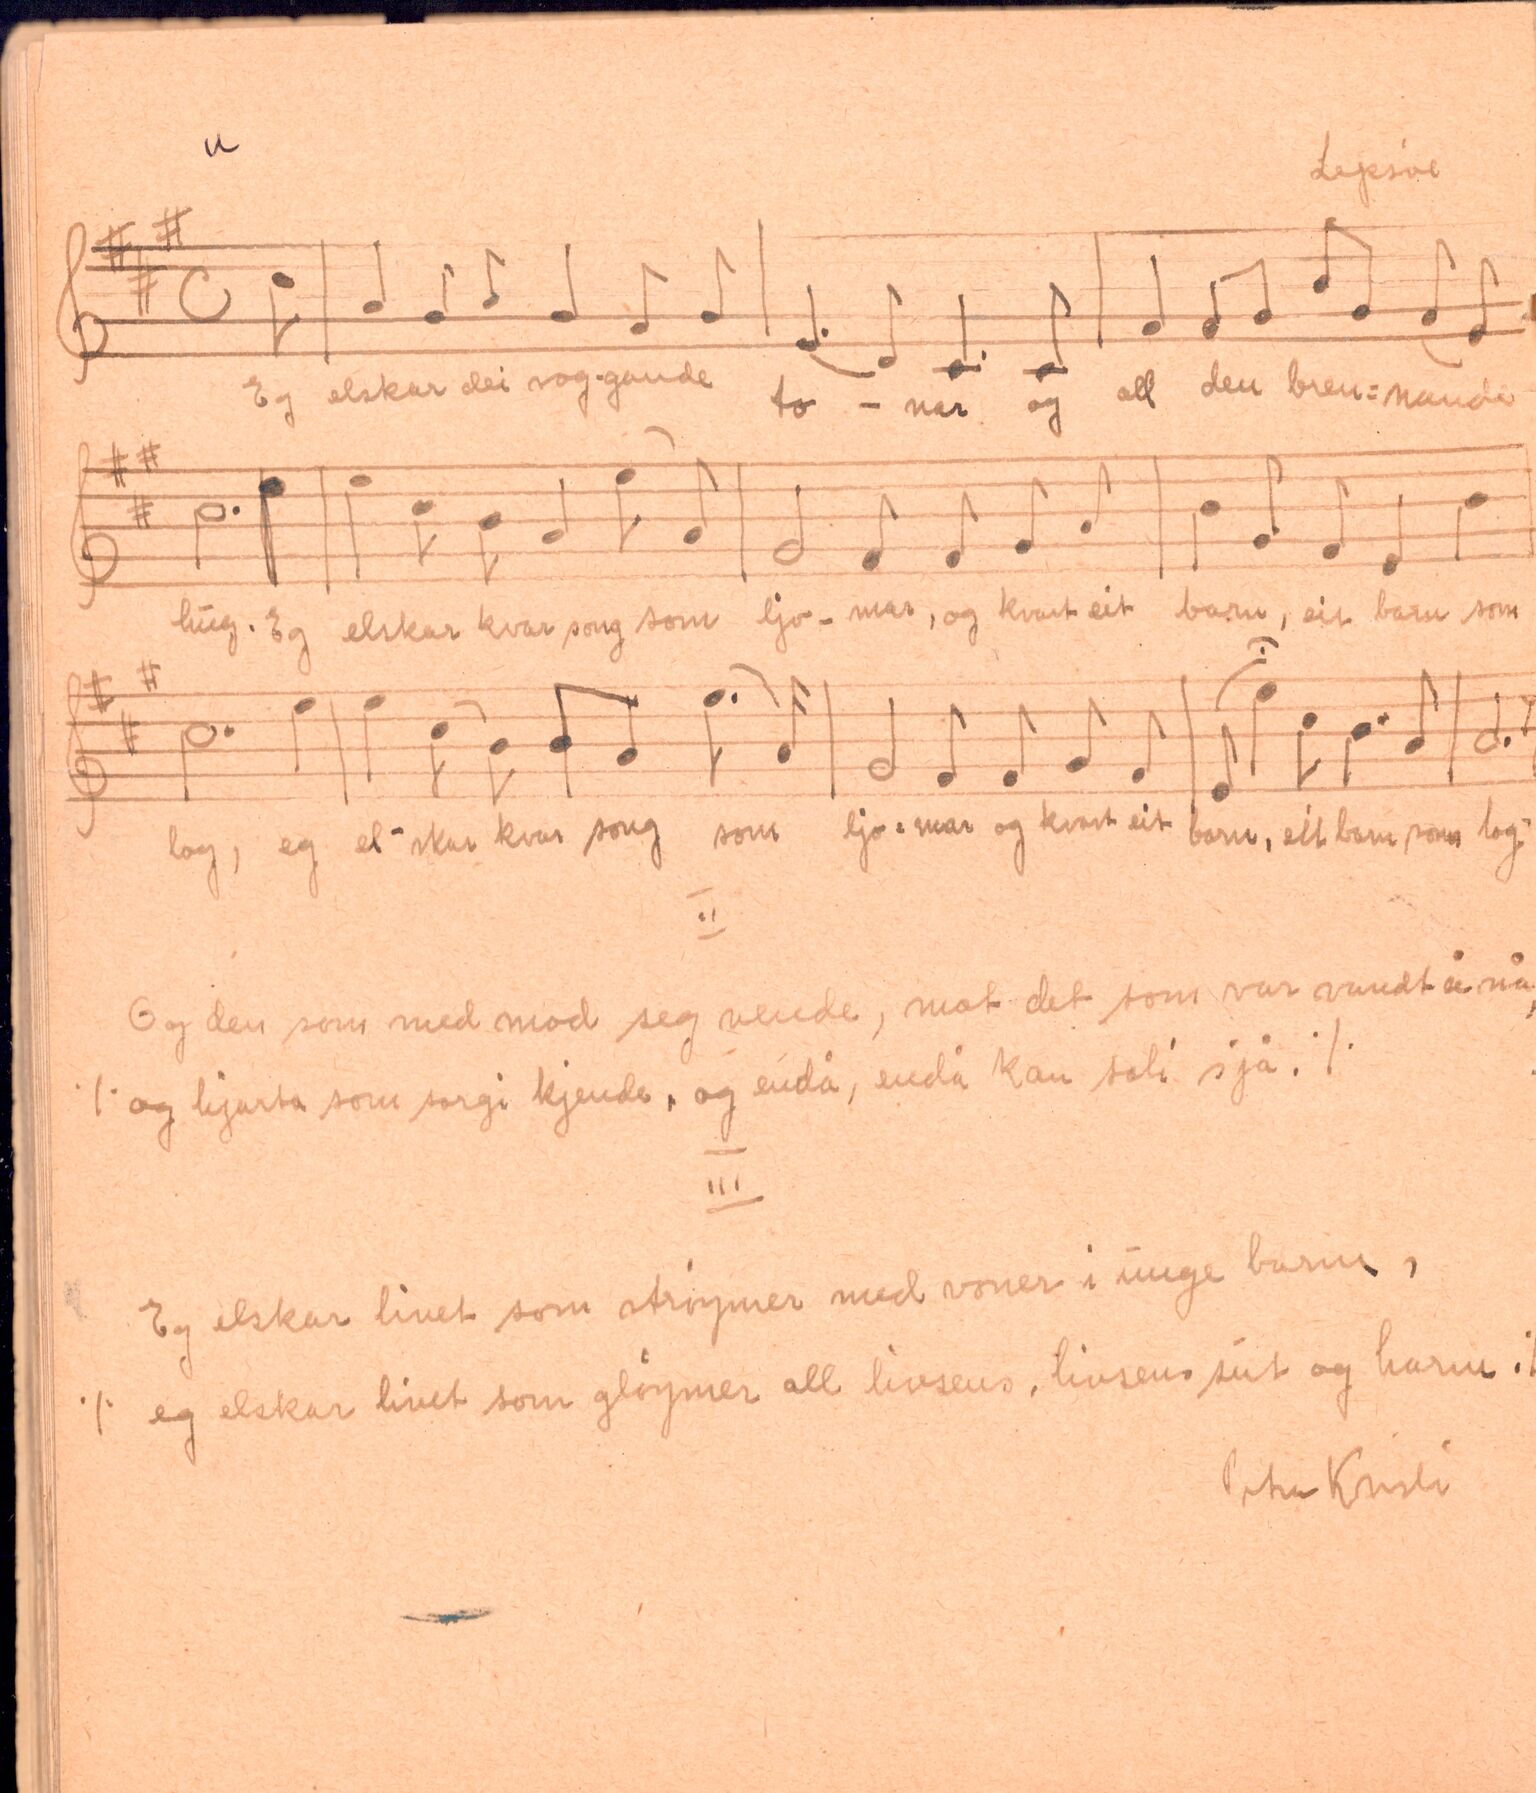 Lepsöe
Eg elskar dei vog-gande to - nar og all den bren=nande
hug. Eg elskar kvar song som ljo - mar, og kvart eit barn, eit barn som
log, eg el-skar kvar song som ljo=mar og kvart eit barn, eit barn som log-
II
Og den som med mod seg vende, mot det som var vandt å nå,
·/· og hjarta som sorgi kjende, og endå, endå kan soli sjå. ·/·
III
Eg elskar livet som strøymer med voner i unge barm,
·/· eg elskar livet som gløymer all livsens, livsens sut og harm ·/·